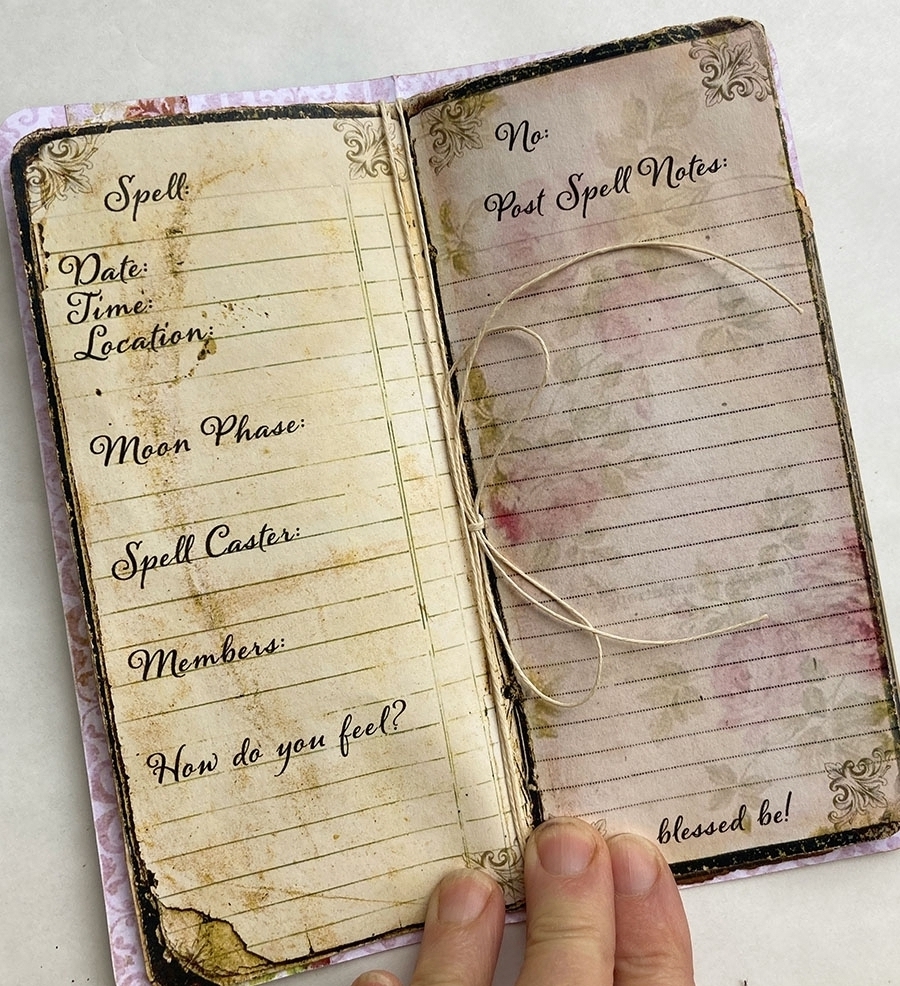 Spell:
Date:
Time:
Location:
Moon Phase:
Spell Caster:
Members:
How do you feel?
No:
Post Spell Notes:
blessed be!